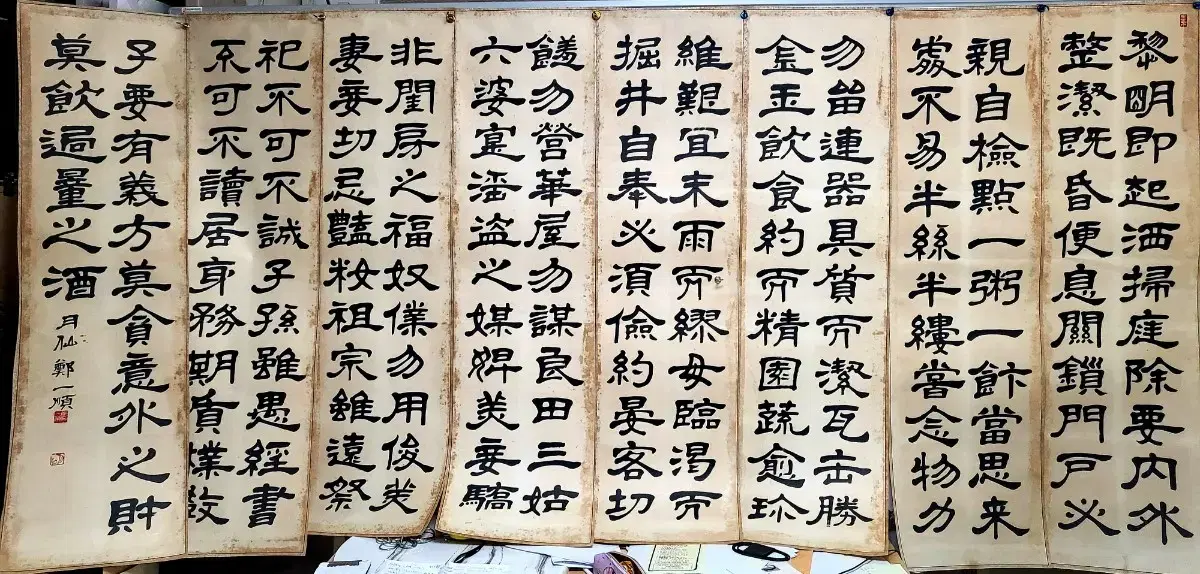 黎明即起洒掃庭除要內外
整潔既昏便息關鎖門戶必
親自檢點一粥一飰當思来
處不易半絲半縷嘗念物力
勿畄連器具質而潔瓦缶勝
金玉飲食約而精園蔬愈珍
維艱宜未雨而繆毋臨渴而
掘井自奉必須儉約晏客切
饍勿營華屋勿謀良田三姑
六婆寔滛盜之媒婢美妾驕
非閨房之福奴僕勿用俊美
妻妾切忌豔粧祖宗雖遠祭
祀不可不誠子孫雖愚經書
不可不讀居身務期質樸教
子要有義方莫貪意外之財
莫飲過量之酒
月仙鄭一順